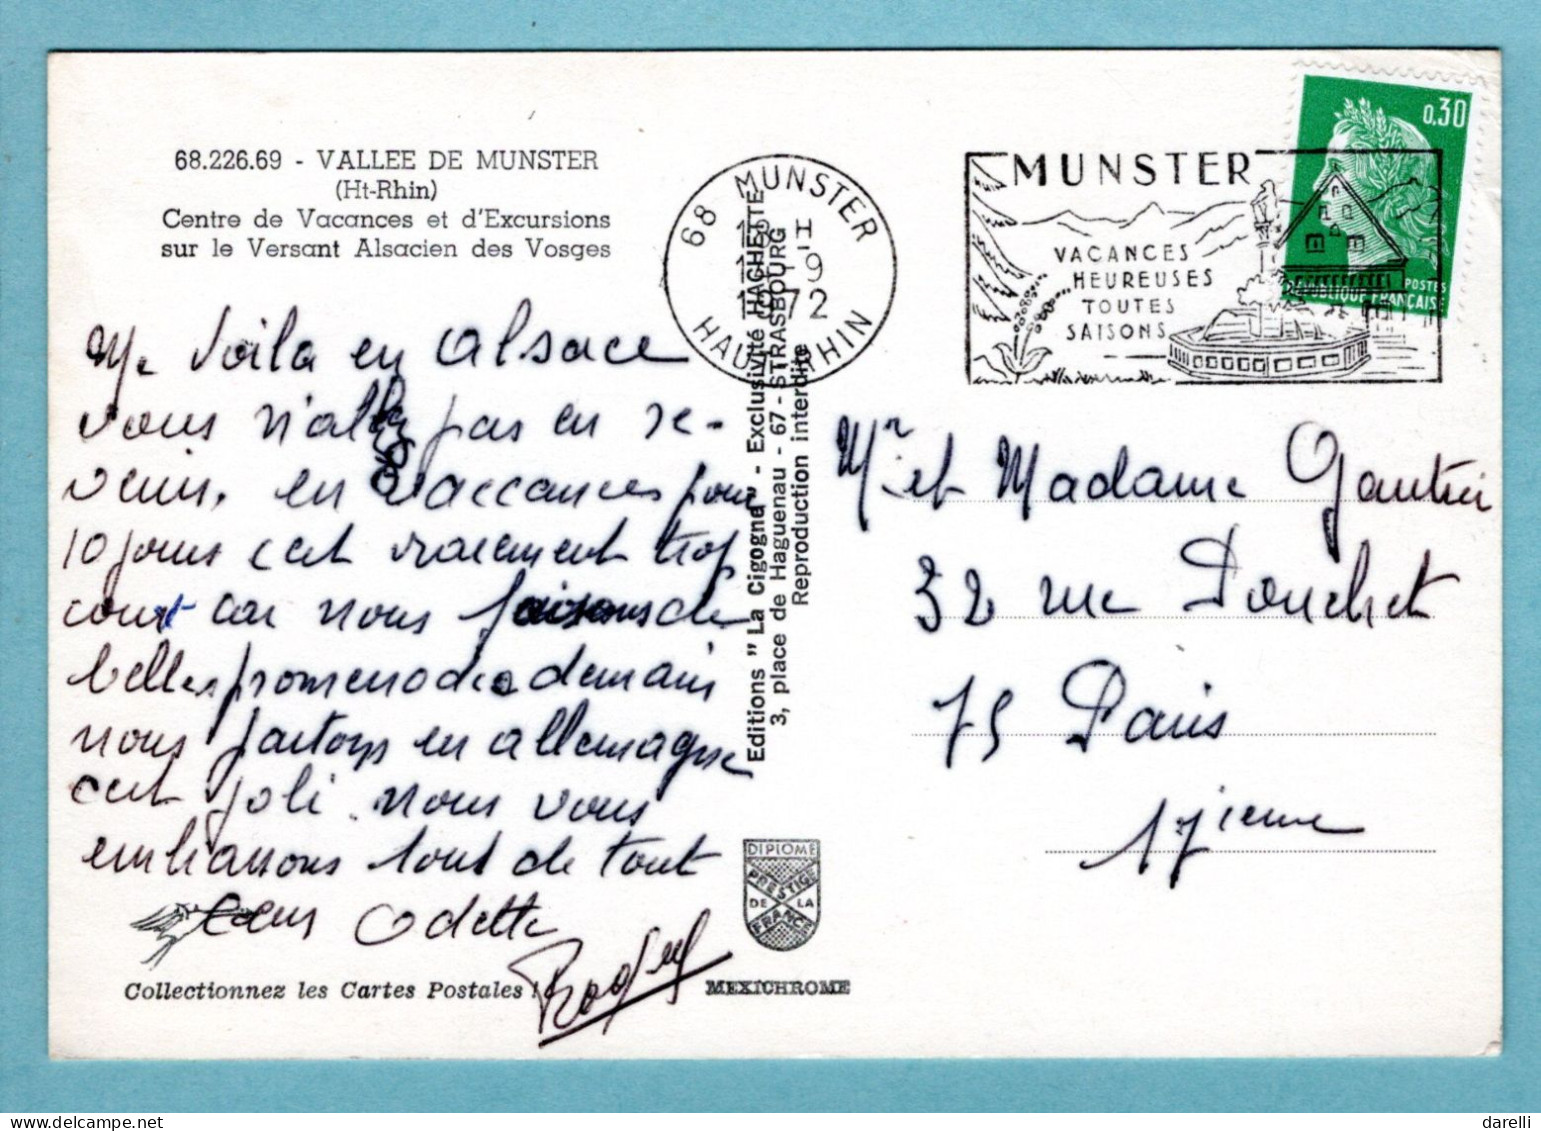 68.226.69 - VALLEE DE MUNSTER
(Ht-Rhin)
Centre de Vacances et d'Excursions
sur le Versant Alsacien des Vosges
Me Voila en Alsace
vous n'allez pas en re-
venir. en vaccances pour
10 jours c'est vraiement trop
court car nous faisons de
belles promenades demain
nous partons en allemagne
c'est joli. nous vous
embrassons tous de tout
cœur Odette
Roger
Collectionnez les Cartes Postales !
68 MUNSTER
HAUT RHIN
1972
Editions "La Cigogne" - Exclusivité HACHETTE
3, place de Haguenau - 67 - STRASBOURG
Reproduction interdite
DIPLOME
PRESTIGE
DE LA
FRANCE
MEXICHROME
MUNSTER
VACANCES
HEUREUSES
TOUTES
SAISONS
0,30
POSTES
REPUBLIQUE FRANÇAISE
Mr et Madame Gautier
32 rue Pouchet
75 Paris
17ieme
darelli